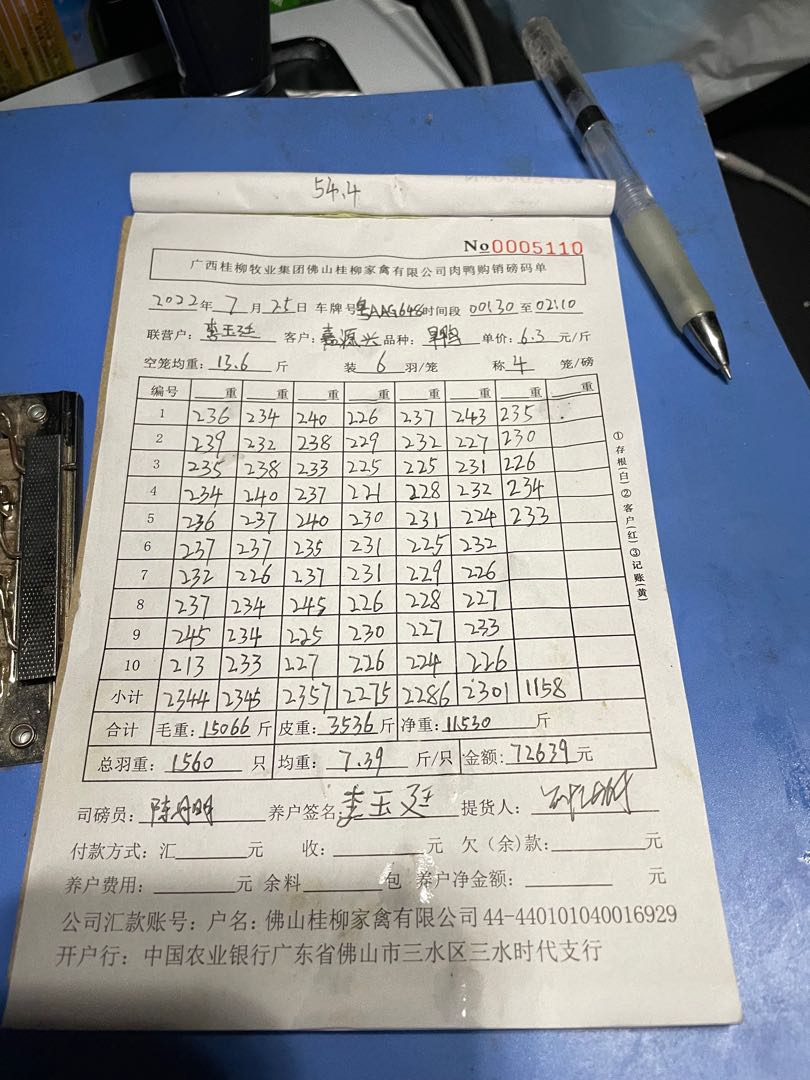 54.4
No 0005110
广西桂柳牧业集团佛山桂柳家禽有限公司肉鸭购销磅码单
2022年 7月 25日 车牌号粤AAG648时间段 00:30 至 02:10
联营户:李玉廷 客户:嘉源兴 品种:鸭 单价:6.3 元/斤
空笼均重:13.6 斤 装 6 羽/笼 称 4 笼/磅
编号 重 重 重 重 重 重 重 重
1 236 234 240 226 237 243 235
2 239 232 238 229 232 227 230
3 235 238 233 225 225 231 226
4 234 240 237 221 228 232 234
5 236 237 240 230 231 224 233
6 237 237 235 231 225 232
7 232 226 237 231 229 226
8 237 234 245 226 228 227
9 245 234 225 230 227 233
10 213 233 227 226 224 226
小计 2344 2345 2357 2275 2286 2301 1158
合计 毛重:15066 斤 皮重:3536 斤 净重:11530 斤
总羽重:1560 只 均重:7.39 斤/只 金额:72639 元
司磅员:陈明 养户签名李玉廷 提货人:
付款方式:汇 元 收: 元 欠(余)款: 元
养户费用: 元 余料 包 养户净金额: 元
公司汇款账号:户名:佛山桂柳家禽有限公司 44-440101040016929
开户行:中国农业银行广东省佛山市三水区三水时代支行
①存根(白)②客户(红)③记账(黄)